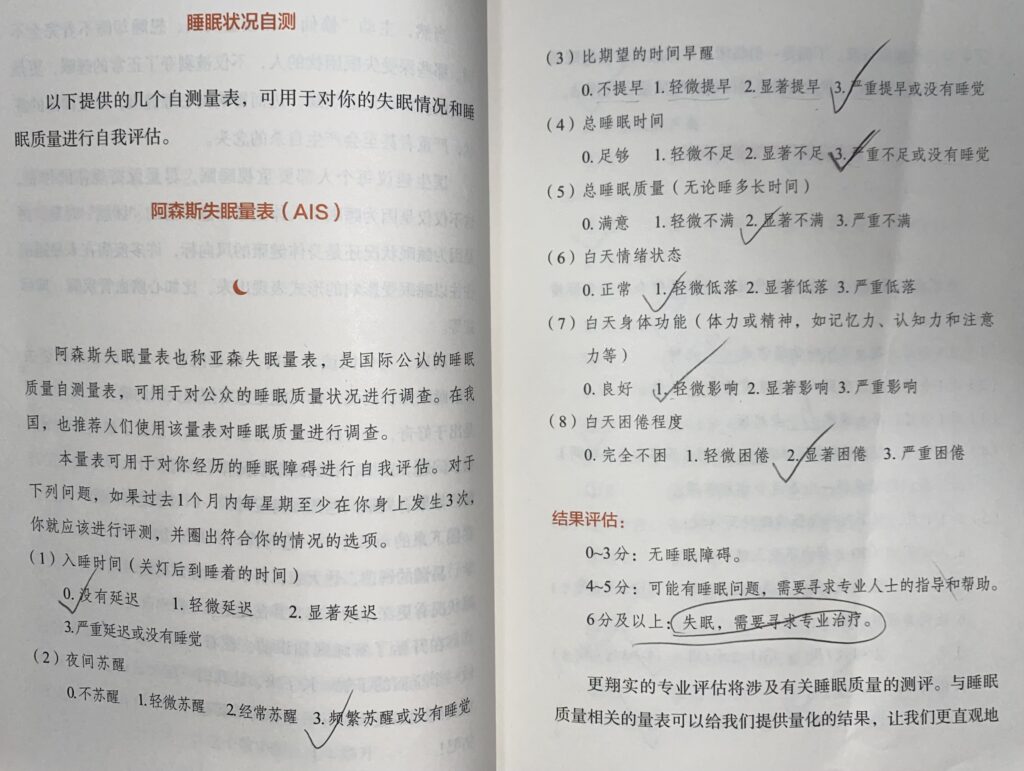 睡眠状况自测
以下提供的几个自测量表，可用于对你的失眠情况和睡
眠质量进行自我评估。
阿森斯失眠量表（AIS）
阿森斯失眠量表也称亚森失眠量表，是国际公认的睡眠
质量自测量表，可用于对公众的睡眠质量状况进行调查。在我
国，也推荐人们使用该量表对睡眠质量进行调查。
本量表可用于对你经历的睡眠障碍进行自我评估。对于
下列问题，如果过去1个月内每星期至少在你身上发生3次，
你就应该进行评测，并圈出符合你的情况的选项。
（1）入睡时间（关灯后到睡着的时间）
0.没有延迟 1.轻微延迟 2.显著延迟
3.严重延迟或没有睡觉
（2）夜间苏醒
0.不苏醒 1.轻微苏醒 2.经常苏醒 3.频繁苏醒或没有睡觉
（3）比期望的时间早醒
0.不提早 1.轻微提早 2.显著提早 3.严重提早或没有睡觉
（4）总睡眠时间
0.足够 1.轻微不足 2.显著不足 3.严重不足或没有睡觉
（5）总睡眠质量（无论睡多长时间）
0.满意 1.轻微不满 2.显著不满 3.严重不满
（6）白天情绪状态
0.正常 1.轻微低落 2.显著低落 3.严重低落
（7）白天身体功能（体力或精神，如记忆力、认知力和注意
力等）
0.良好 1.轻微影响 2.显著影响 3.严重影响
（8）白天困倦程度
0.完全不困 1.轻微困倦 2.显著困倦 3.严重困倦
结果评估：
0~3分：无睡眠障碍。
4~5分：可能有睡眠问题，需要寻求专业人士的指导和帮助。
6分及以上：失眠，需要寻求专业治疗。
更翔实的专业评估将涉及有关睡眠质量的测评。与睡眠
质量相关的量表可以给我们提供量化的结果，让我们更直观地